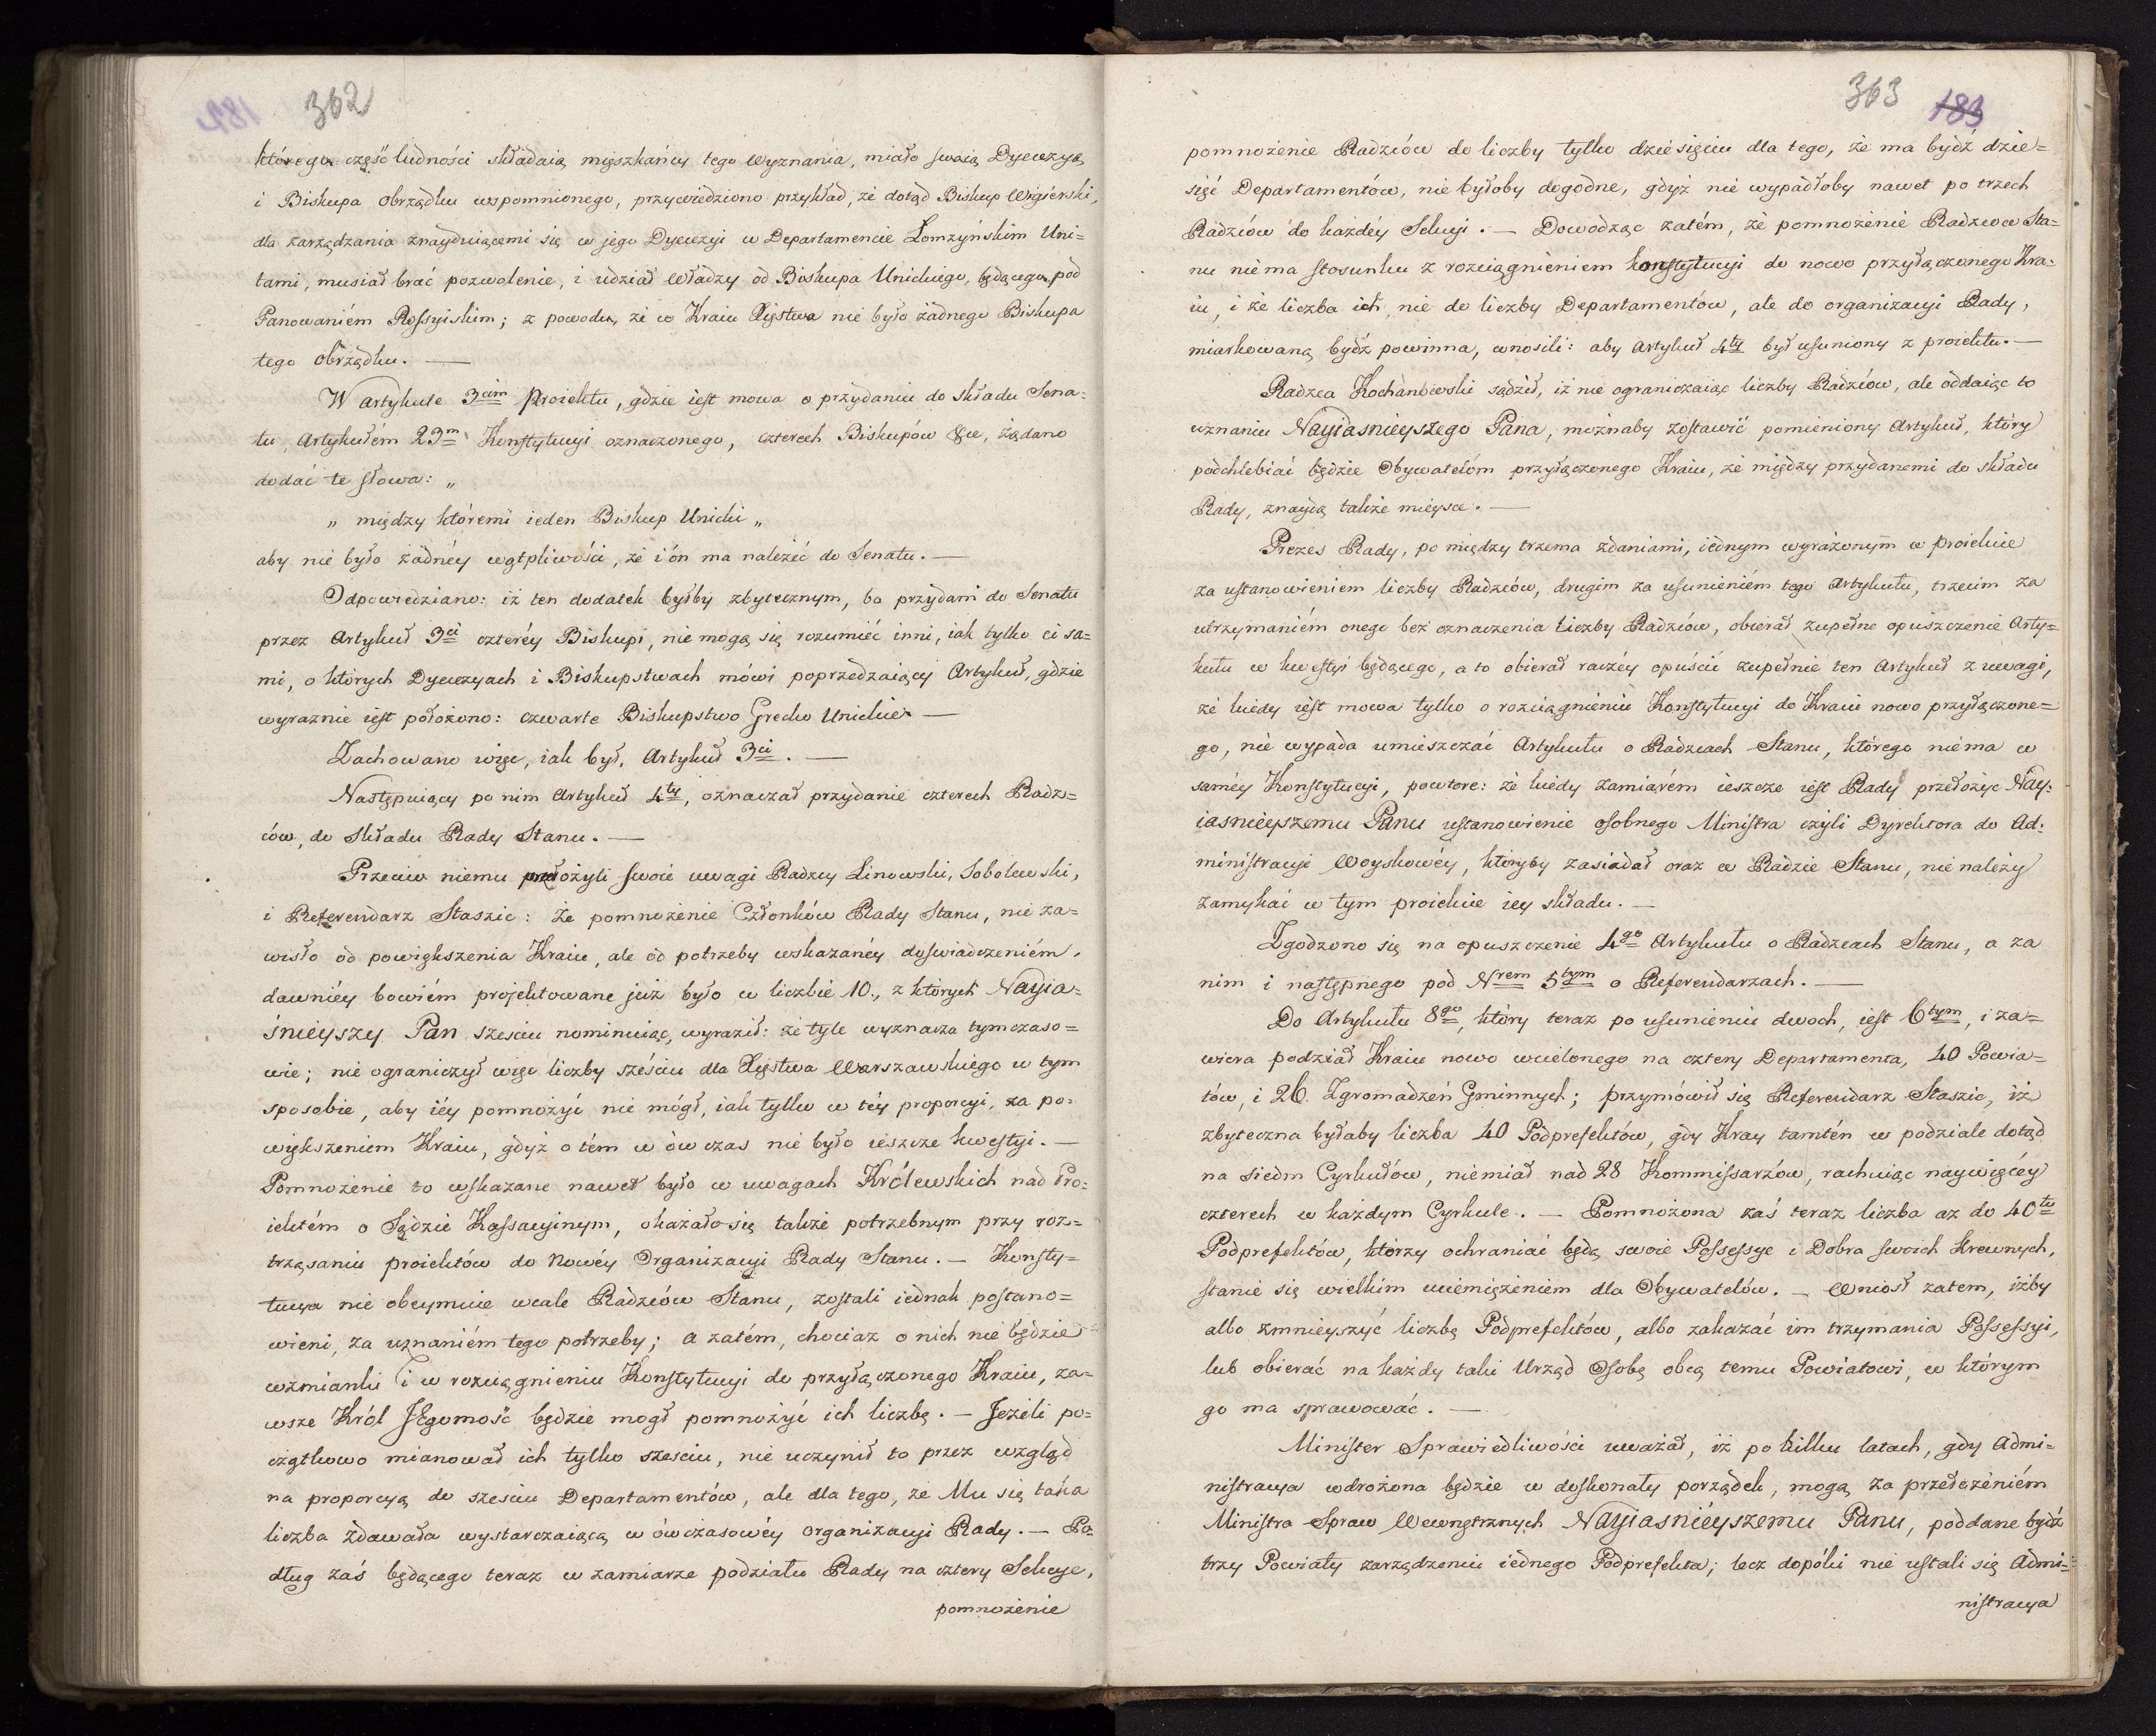 362
którego część ludności składaią mięszkańcy tego wyznania, miało swoią Dyecezyą
i Biskupa obrządku wspomnionego, przywiedziono przykład, że dotąd Biskup Wigierski,
dla zarządzania znayduiącemi się w jego Dyecezyi w Departamencie Łomżyńskim Uni=
tami, musiał brać pozwolenie, i udział władzy od Biskupa Unickiego, będącego pod
Panowaniém Rossyiskim; z powodu, że w Kraiu Xięstwa nie było żadnego Biskupa
tego obrządku. —
W artykule 3cim Proiektu, gdzie iest mowa o przydaniu do składu Sena=
tu, Artykułém 23m Konstytucyi oznaczonego, czterech Biskupów &c, żądano
dodać te słowa: „
„ między któremi ieden Biskup Unicki „
aby nie było żadnéy wątpliwości, że i ón ma należéć do Senatu. —
Odpowiedziano: iż ten dodatek byłby zbytecznym, bo przydani do Senatu
przez Artykuł 3ci czteréy Biskupi, nie mogą się rozumieć inni, iak tylko ci sa=
mi, o których Dyecezyach i Biskupstwach mówi poprzedzaiący Artykuł, gdzie
wyraznie iest położono: czwarte Biskupstwo Grecko Unickie. —
Zachowano więc, iak był, Artykuł 3ci. —
Następuiący po nim Artykuł 4ty, oznaczał przydanie czterech Radz=
ców, do składu Rady Stanu. —
Przeciw niemu przełożyli swoie uwagi Radzcy Linowski, Sobolewski,
i Referendarz Staszic: Że pomnożenie Członków Rady Stanu, nie za=
wisło od powiększenia Kraiu, ale od potrzeby wskazanéy doświadczeniém,
dawniéy bowiém projektowane już było w liczbie 10., z których Nayia=
śnieyszy Pan sześciu nominuiąc, wyraził: że tyle wyznacza tymczaso=
wie; nie ograniczył więc liczby sześciu dla Xięstwa Warszawskiego w tym
sposobie, aby iéy pomnożyć nie mógł, iak tylko w téy proporcyi, za po=
większeniem Kraiu, gdyż o tém w ów czas nie było ieszcze kwestyi. —
Pomnożenie to wskazane nawet było w uwagach Królewskich nad Pro=
iektém o Sądzie Kassacyinym, okazało się także potrzebnym przy roz=
trząsaniu proiektów do Nowéy Organizacyi Rady Stanu. — Konsty=
tucya nie obeymuie wcale Radzców Stanu, zostali iednak postano=
wieni, za uznaniém tego potrzeby; a zatém, chociaz o nich nie będzie
wzmianki i w rozciągnieniu Konstytucyi do przyłączonego Kraiu, za=
wsze Król JEgomość będzie mogł pomnożyć ich liczbę. — Jeżeli po=
czątkowo mianował ich tylko sześciu, nie uczynił to przez wzgląd
na proporcyą do sześciu Departamentów, ale dla tego, że Mu się taka
liczba zdawała wystarczaiącą w ówczasowéy organizacyi Rady. — Po=
dług zaś będącego teraz w zamiarze podziału Rady na cztery Sekcye,
pomnożenie
363 183
pomnożenie Radzców do liczby tylko dziesięciu dla tego, że ma bydź dzie=
sięć Departamentów, nie byłoby dogodne, gdyż nie wypadłoby nawet po trzech
Radzców do każdéy Sekcyi. — Dowodząc zatém, że pomnożenie Radzców Sta=
nu niema stosunku z rozciągnieniem konstytucyi do nowo przyłączonego Kra=
iu, i że liczba ich, nie do liczby Departamentów, ale do organizacyi Rady,
miarkowaną bydź powinna, wnosili: aby Artykuł 4ty był usuniony z proiektu. —
Radzca Kochanowski sądził, iż nie ograniczaiąc liczby Radzców, ale oddaiąc to
uznaniu Nayiasnieyszego Pana, możnaby zostawić pomieniony Artykuł, który
podchlebiać będzie Obywatelóm przyłączonego Kraiu, że między przydanemi do składu
Rady, znaydą także mieysce. —
Prezes Rady, po między trzema zdaniami, iednym wyrażonym w proiekcie
za ustanowieniem liczby Radzców, drugim za usunieniém tego Artykułu, trzecim za
utrzymaniém onego bez oznaczenia liczby Radzców, obierał zupełne opuszczenie Arty=
kułu w kwestyi będącego, a to obierał raczéy opuścić zupełnie ten Artykuł z uwagi,
że kiedy iest mowa tylko o rozciągnieniu Konstytucyi do Kraiu nowo przyłączone=
go, nie wypada umieszczać Artykułu o Radzcach Stanu, którego niema w
saméy Konstytucyi, powtore: że kiedy zamiarém ieszcze iest Rady przełożyć Nay=
iasnieyszemu Panu ustanowienie osobnego Ministra czyli Dyrektora do Ad=
ministracyi Woyskowéy, któryby zasiadał oraz w Radzie Stanu, nie należy
zamykać w tym proiekcie iey składu. —
Zgodzono się na opuszczenie 4go Artykułu o Radzcach Stanu, a za
nim i następnego pod Nrem 5tym o Referendarzach. —
Do Artykułu 8go, który teraz po usunieniu dwoch, iest 6tym, i za=
wiera podział Kraiu nowo wcielonego na cztery Departamenta, 40 Powia=
tów, i 26. Zgromadzeń Gminnych; przymówił się Referendarz Staszic, iż
zbyteczna byłaby liczba 40 Podprefektów, gdy Kray tamtén w podziale dotąd
na siedm Cyrkułów, niemiał nad 28 Kommissarzów, rachuiąc naywięcéy
czterech w każdym Cyrkule. — Pomnożona zaś teraz liczba az do 40tu
Podprefektów, którzy ochraniać będą swoie Possessye i Dobra swoich Krewnych,
stanie się wielkim uciemiężeniem dla Obywatelów. — Wniosł zatem, iżby
albo zmnieyszyć liczbę Podprefektów, albo zakazać im trzymania Possessyi,
lub obierać na każdy taki Urząd Osobę obcą temu Powiatowi, w którym
go ma sprawować. —
Minister Sprawiedliwości uważał, iż po kilku latach, gdy Admi=
nistracya wdrożona będzie w doskonały porządek, mogą za przełożéniém
Ministra Spraw Wewnętrznych Nayiaśnieyszemu Panu, poddane bydź
trzy Powiaty zarządzeniu iednego Podprefekta; lecz dopóki nie ustali się Admi=
nistracya